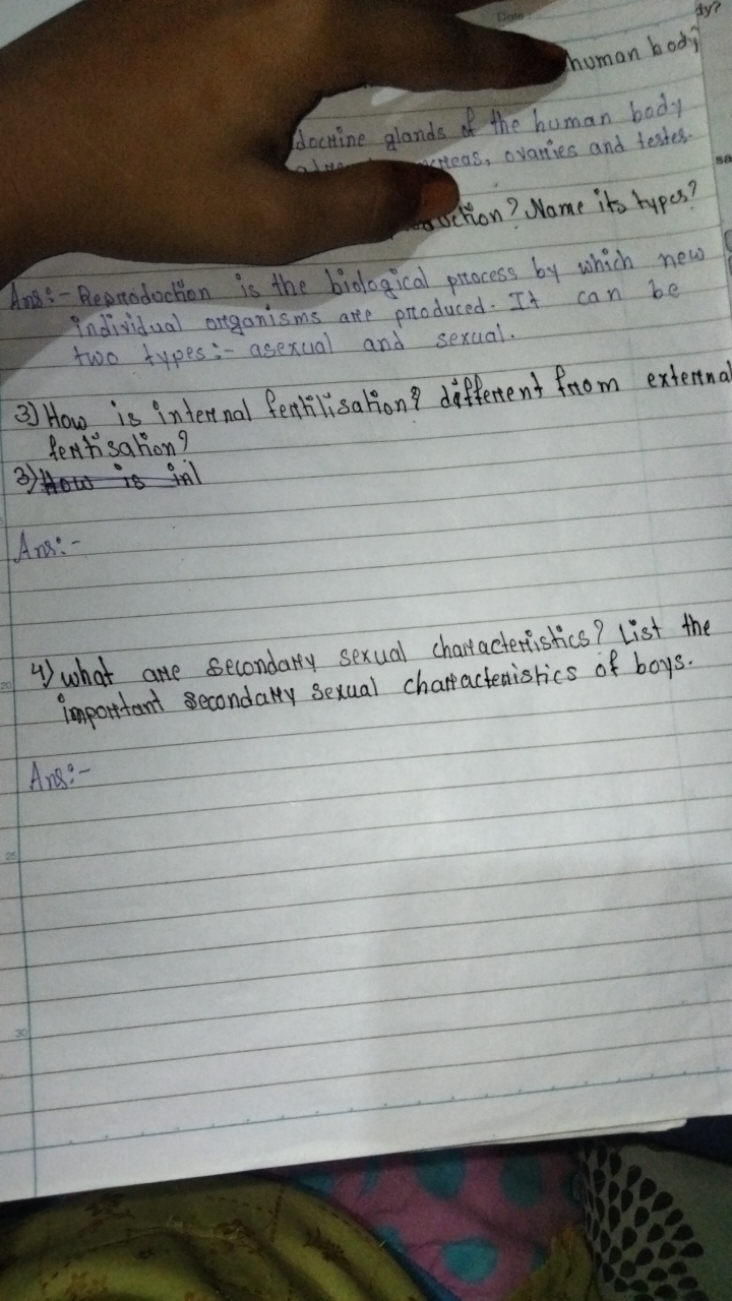 Date
dy?
human body
docrine glands of the human body
ovaries and testes.
Name its types?
Ans:- Reproduction is the biological process by which new
individual organisms are produced. It can be
two types:- asexual and sexual.
3) How is internal fertilisation? different from external
fertisation?
3) How is in
Ans:-
4) what are secondary sexual characteristics? List the
important secondary sexual characteristics of boys.
Ans:-
20
25
30